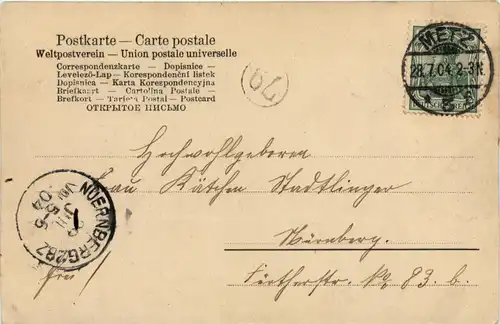 Postkarte — Carte postale
Weltpostverein — Union postale universelle
Correspondenzkarte — Dopisnice —
Levelező-Lap — Korespondenční listek
Dopisnica — Karta Korespondencyjna
Briefkaart — Cartolina Postale —
Brefkort — Tarjeta Postal — Postcard
ОТКРЫТОЕ ПИСЬМО
METZ
28.7.04. 2-3N.
79
Hochwohlgeboren
Frau Kätchen Stadtlinger
Nürnberg.
Fürtherstr. No 83. b.
NUERNBERG 2BZ